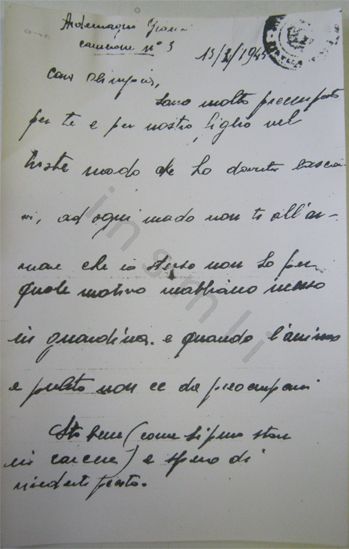 Ardemagni Gianni
camerone n° 3
13/2/1945
Cara Olimpia,
Sono molto preoccupato
per te e per nostro figlio nel
triste modo che ho dovuto lascia
vi, ad ogni modo non ti all'ar-
mare che io stesso non so per
quale motivo mabbiano messo
in guardina. e quando l'animo
e pulito non ce da preoccuparsi
Sto bene (come si puo stare
in carcere) e spero di
rivederti presto.
insmli